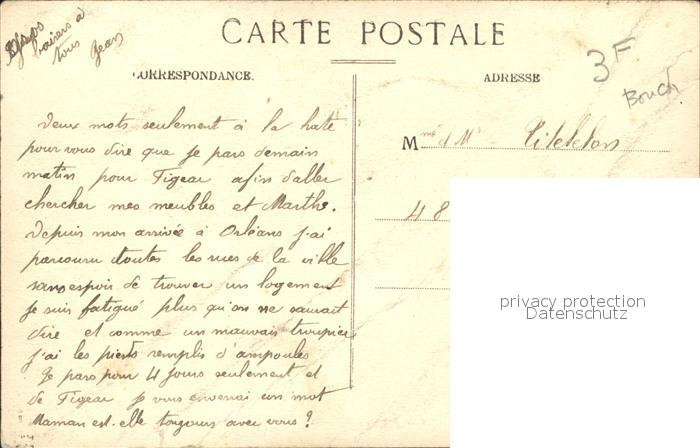 Gros
baisers à
tous
Jean
CARTE POSTALE
CORRESPONDANCE.
ADRESSE
3F
Bouch
Deux mots seulement à la hate
pour vous dire que je pars demain
matin pour Figeac afin d'aller
chercher mes meubles et Marthe.
Depuis mon arrivée à Orléans j'ai
parcouru toutes les rues de la ville
sans espoir de trouver un logement
je suis fatigué plus qu'on ne saurait
dire et comme un mauvais troupier
j'ai les pieds remplis d'ampoules
Je pars pour 4 jours seulement et
de Figeac je vous enverrai un mot
Maman est-elle toujours avec vous?
Mme et Mr
48
privacy protection
Datenschutz